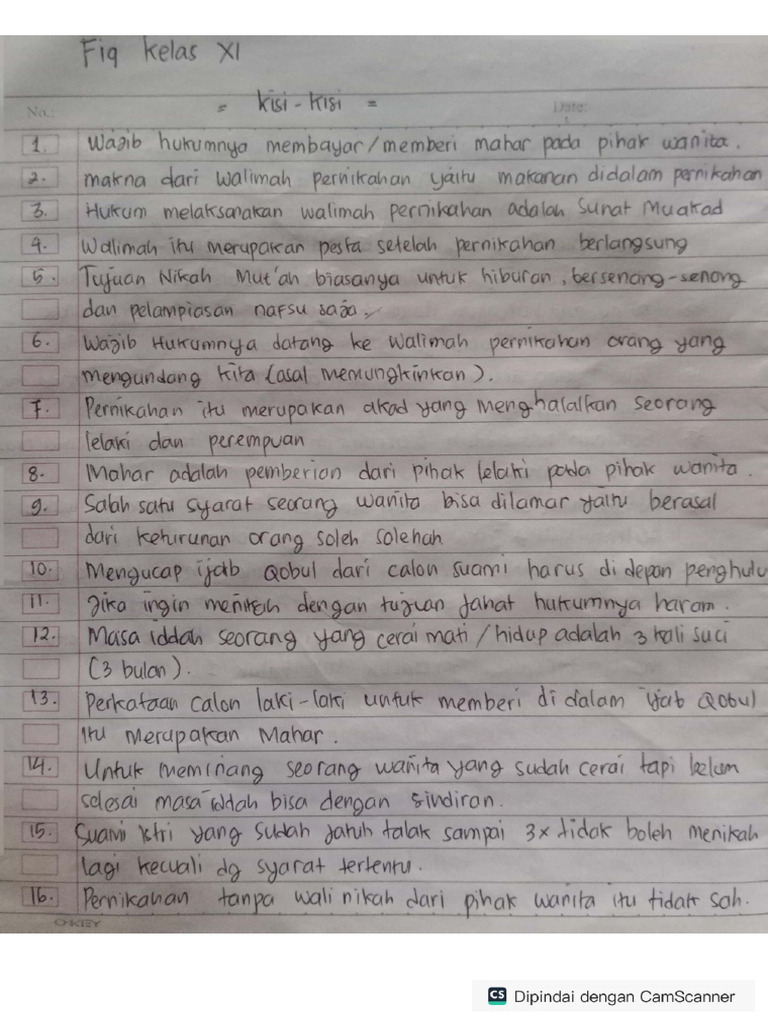 Fiq kelas XI
= kisi - kisi =
No.: Date:
1. Wajib hukumnya membayar/memberi mahar pada pihak wanita.
2. makna dari walimah pernikahan yaitu makanan didalam pernikahan
3. Hukum melaksanakan walimah pernikahan adalah Sunat Muakad
4. Walimah itu merupakan pesta setelah pernikahan berlangsung
5. Tujuan Nikah Mut'ah biasanya untuk hiburan, bersenang-senang
dan pelampiasan nafsu saja.
6. Wajib Hukumnya datang ke walimah pernikahan orang yang
mengundang kita (asal memungkinkan).
7. Pernikahan itu merupakan akad yang menghalalkan seorang
lelaki dan perempuan
8. Mahar adalah pemberian dari pihak lelaki pada pihak wanita.
9. Salah satu syarat seorang wanita bisa dilamar yaitu berasal
dari keturunan orang soleh solehah
10. Mengucap ijab Qobul dari calon suami harus di depan penghulu
11. Jika ingin menikah dengan tujuan jahat hukumnya haram.
12. Masa iddah seorang yang cerai mati / hidup adalah 3 kali suci
(3 bulan).
13. Perkataan calon laki-laki untuk memberi di dalam ijab Qobul
itu merupakan Mahar.
14. Untuk meminang seorang wanita yang sudah cerai tapi belum
selesai masa iddah bisa dengan sindiran.
15. Suami istri yang sudah jatuh talak sampai 3x tidak boleh menikah
lagi kecuali dg syarat tertentu.
16. Pernikahan tanpa wali nikah dari pihak wanita itu tidak sah.
CS Dipindai dengan CamScanner